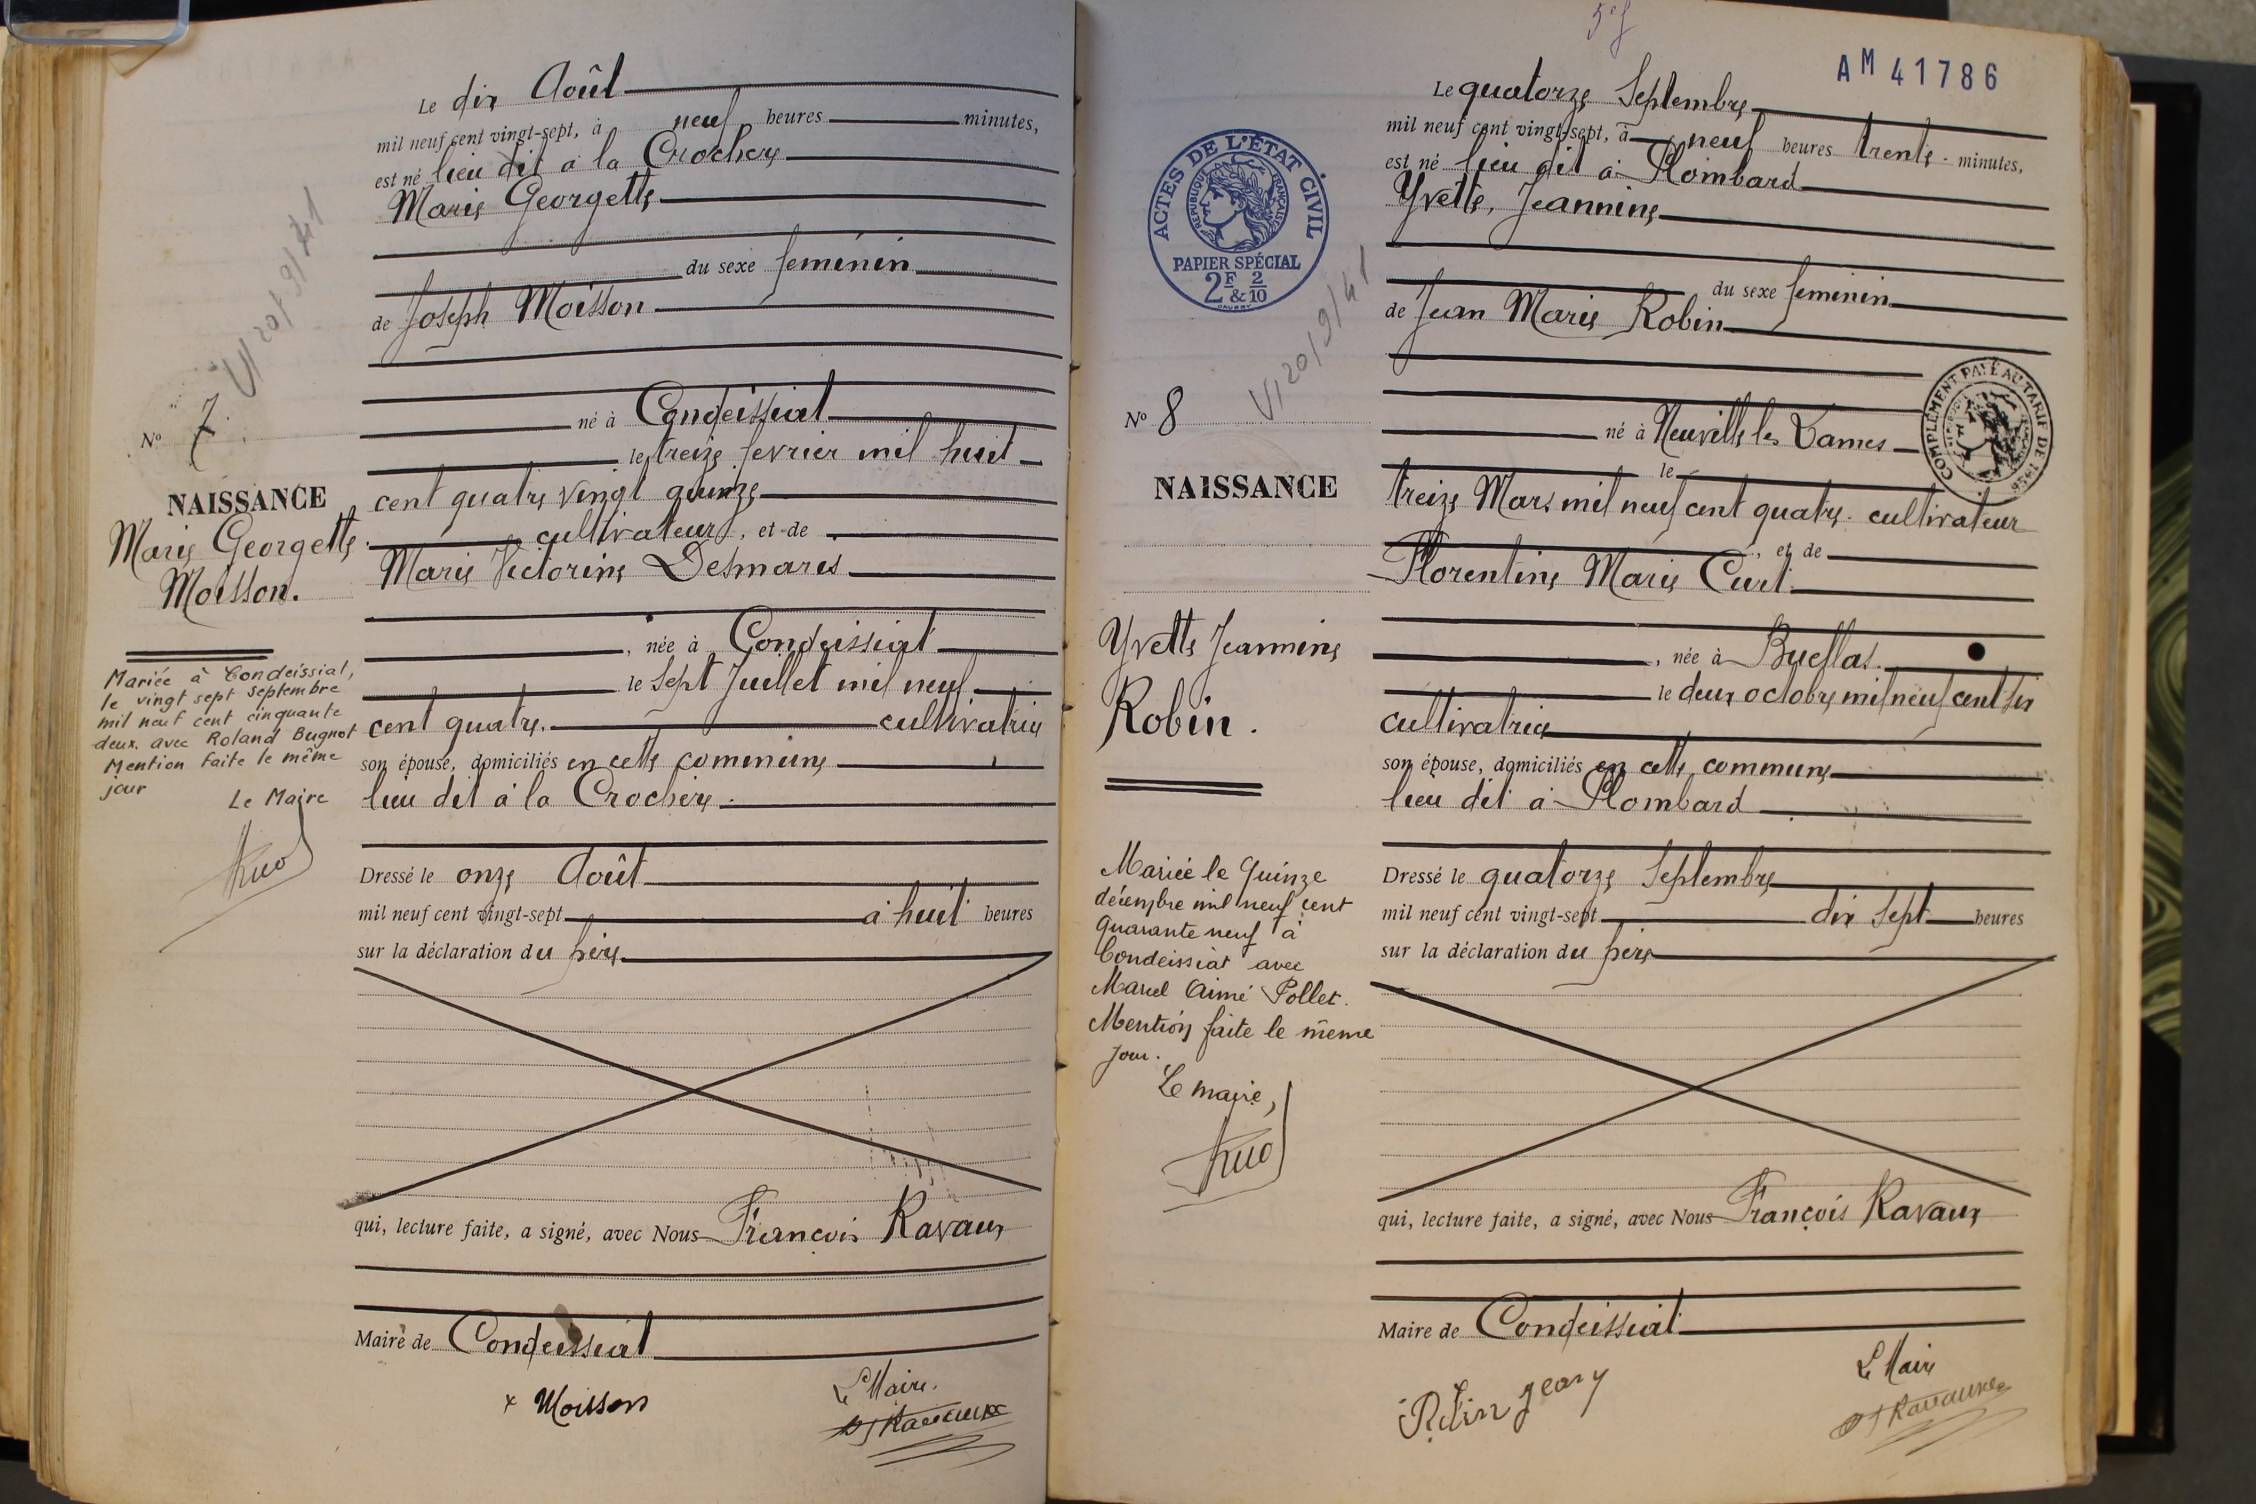 Le dix Août
mil neuf cent vingt-sept, à neuf heures minutes,
est né lieu dit à la Crochery
Marie Georgette
du sexe féminin
de Joseph Moisson
né à Condeissiat
le treize fevrier mil huit
cent quatre vingt quinze
cultivateur, et de
Marie Victorine Desmaris
, née à Condeissiat
le sept Juillet mil neuf
cent quatre. cultivatrice
son épouse, domiciliés en cette commune
lieu dit à la Crochery.
Dressé le onze Août
mil neuf cent vingt-sept à huit heures
sur la déclaration du père
qui, lecture faite, a signé, avec Nous François Ravaux
Maire de Condeissiat
x Moisson
Le Maire.
Ravaux
V/20/9/41
No 7.
NAISSANCE
Marie Georgette
Moisson.
Mariée à Condeissiat,
le vingt sept septembre
mil neuf cent cinquante
deux. avec Roland Bugnot
Mention faite le même
jour
Le Maire
5e f
AM 41786
ACTES DE L'ÉTAT CIVIL
RÉPUBLIQUE FRANÇAISE
PAPIER SPÉCIAL
2F & 2/10
Le quatorze Septembre
mil neuf cent vingt-sept, à neuf heures trente. minutes,
est né lieu dit à Plombard
Yvette, Jeannine
du sexe féminin
de Jean Marie Robin
né à Neuville les Dames
COMPLÉMENT PAYÉ AU TARIF DE 1926
le
treize Mars mil neuf cent quatre. cultivateur
, et de
Florentine Marie Curt.
, née à Buellas.
le deux octobre mil neuf cent six
cultivatrice
son épouse, domiciliés en cette commune
lieu dit à Plombard
Dressé le quatorze Septembre
mil neuf cent vingt-sept dix sept heures
sur la déclaration du père
qui, lecture faite, a signé, avec Nous François Ravaux
Maire de Condeissiat
Le Maire
Robin Jeany
Ravaux
V/20/9/41
No 8
NAISSANCE
Yvette Jeannine
Robin.
Mariée le Quinze
décembre mil neuf cent
Quarante neuf à
Condeissiat avec
Marcel Aimé Pollet.
Mention faite le même
jour.
Le maire,